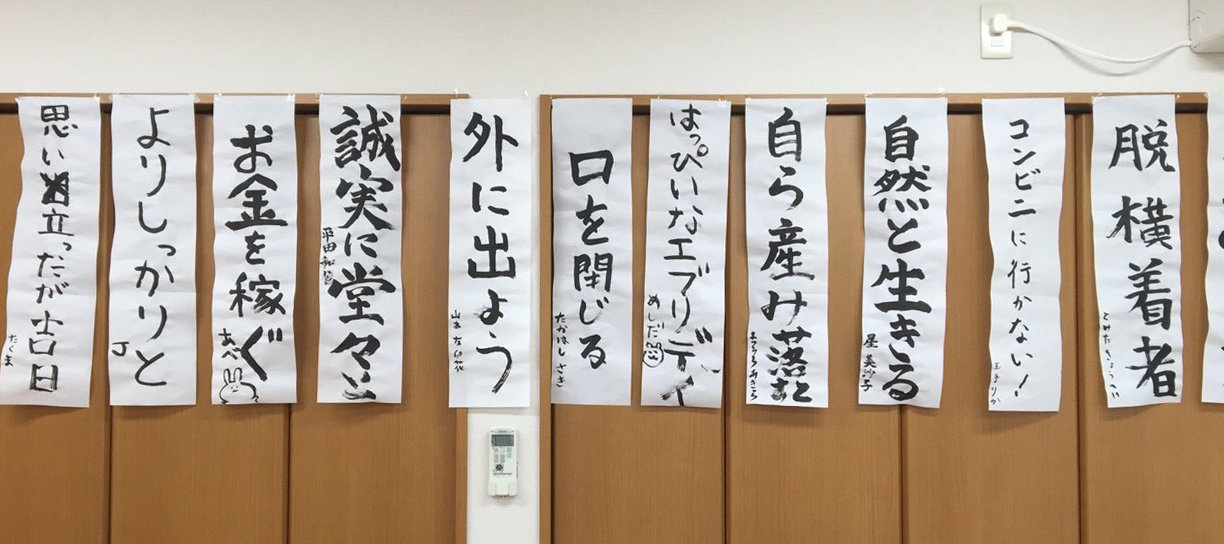 脱横着者
コンビニに行かない！
自然と生きる
星 美沙子
自ら産み
はっぴいなエブリディ
めしだ
口を閉じる
たかはし さき
外に出よう
誠実に堂々と
平田
お金を稼ぐ
あべ
よりしっかりと
J
思い立ったが吉日
たくま